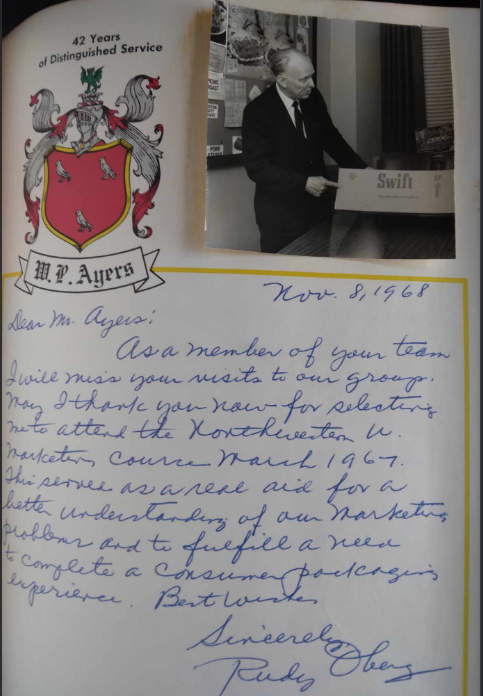 42 Years
of Distinguished Service
W. P. Ayers
PICNIC
ROAST
PORK
Swift
Nov. 8, 1968
Dear Mr. Ayers:
As a member of your team
I will miss your visits to our group.
May I thank you now for selecting
me to attend the Northwestern U.
Marketing course March 1967.
This serves as a real aid for a
better understanding of our marketing
problems and to fulfill a need
to complete a consumer packaging
experience. Best Wishes
Sincerely,
Rudy Oberg